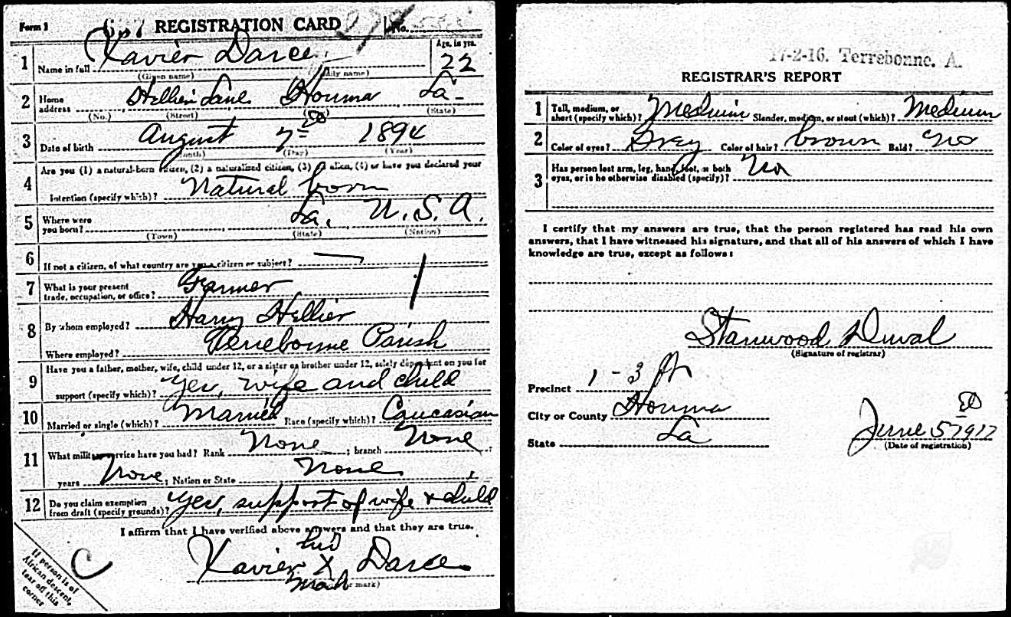 Form 1
REGISTRATION CARD No.
1 Name in full Xavier Darce Age, in yrs. 22
(Given name) (Family name)
2 Home address Hellier Lane Houma La
(No.) (Street) (State)
3 Date of birth August 7 1894
(Month) (Day) (Year)
4 Are you (1) a natural-born citizen, (2) a naturalized citizen, (3) an alien, (4) or have you declared your
intention (specify which)? Natural born
5 Where were you born? La. U.S.A.
(Town) (State) (Nation)
6 If not a citizen, of what country are you a citizen or subject?
7 What is your present trade, occupation, or office? Farmer
8 By whom employed? Harry Hellier
Where employed? Terrebonne Parish
9 Have you a father, mother, wife, child under 12, or a sister or brother under 12, solely dependent on you for
support (specify which)? Yes, wife and child
10 Married or single (which)? Married Race (specify which)? Caucasian
11 What military service have you had? Rank None ; branch None ;
years None , Nation or State None
12 Do you claim exemption from draft (specify grounds)? Yes, support of wife & child
I affirm that I have verified above answers and that they are true.
his
Xavier X Darce
mark
(Signature or mark)
C
If person is of
African descent,
tear off this
corner
17-2-16. Terrebonne. A.
REGISTRAR'S REPORT
1 Tall, medium, or short (specify which)? Medium Slender, medium, or stout (which)? Medium
2 Color of eyes? Gray Color of hair? brown Bald? No
3 Has person lost arm, leg, hand, foot, or both
eyes, or is he otherwise disabled (specify)? No
I certify that my answers are true, that the person registered has read his own
answers, that I have witnessed his signature, and that all of his answers of which I have
knowledge are true, except as follows:
Stanwood Duval
(Signature of registrar)
Precinct 1-3
City or County Houma
State La
June 5 1917
(Date of registration)